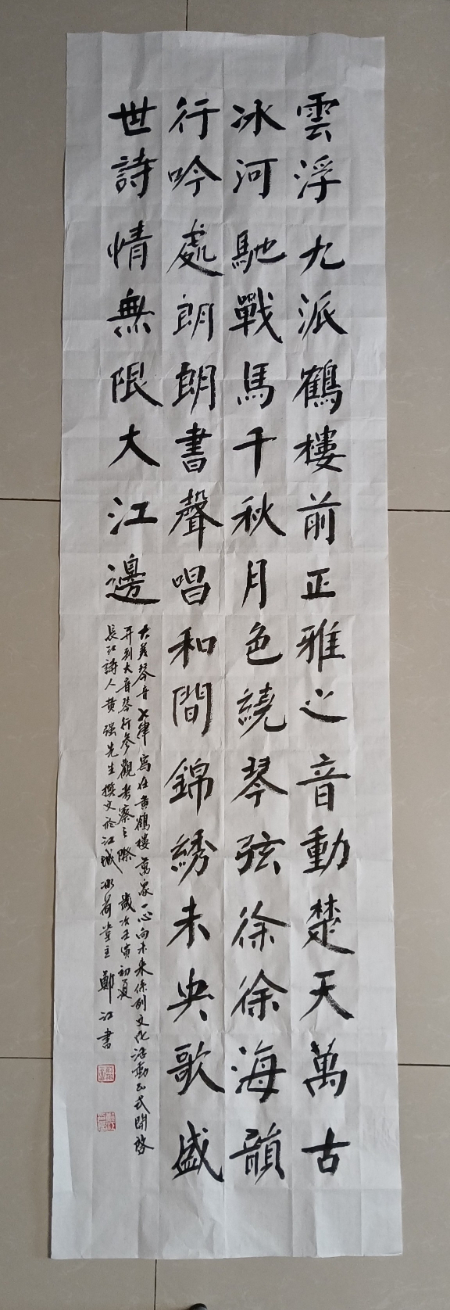 雲浮九派鶴樓前正雅之音動楚天萬古
冰河馳戰馬千秋月色繞琴弦徐徐海韻
行吟處朗朗書聲唱和間錦綉未央歌盛
世詩情無限大江邊
大美琴音七律寫在黃鶴樓萬眾一心向未來係列文化活動正式開啓
并到大音琴行參觀考察之際歲次壬寅初夏
長江詩人黃強先生撰文於江城冰荷堂主鄭江書